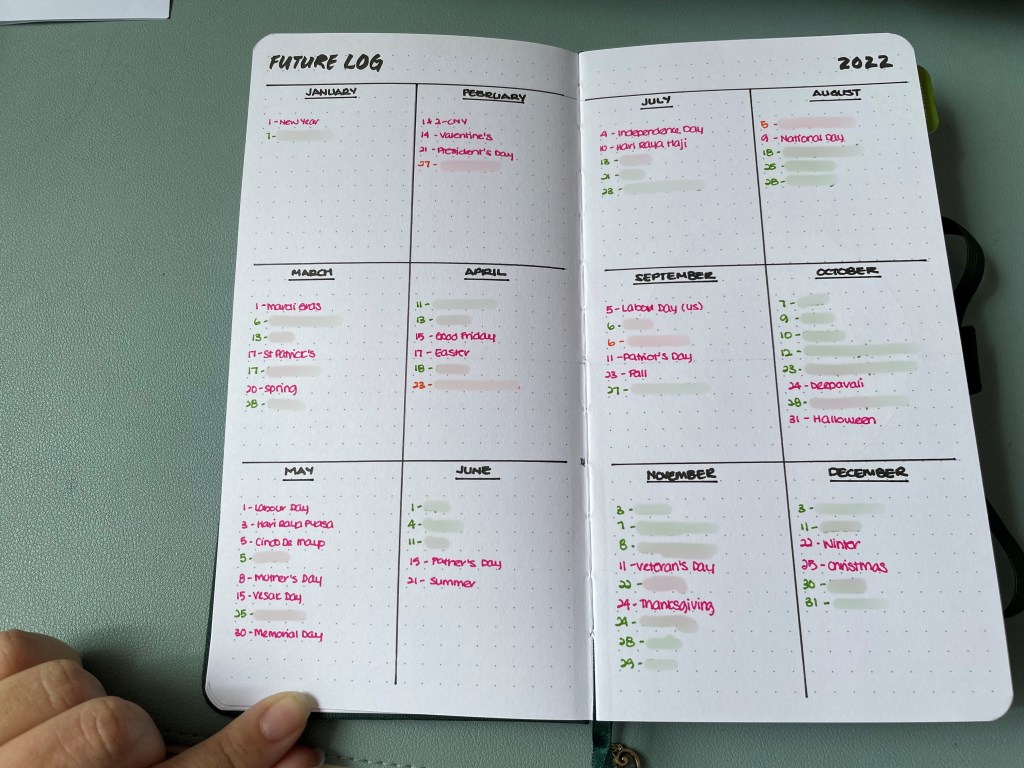 FUTURE LOG
2022
JANUARY
1 - New Year
7 -
FEBRUARY
1 & 2 - CNY
14 - Valentine's
21 - President's Day
27 -
MARCH
1 - Mardi Gras
6 -
13 -
17 - St Patrick's
17 -
20 - Spring
28 -
APRIL
11 -
13 -
15 - Good Friday
17 - Easter
18 -
23 -
MAY
1 - Labour Day
3 - Hari Raya Puasa
5 - Cinco De Mayo
5 -
8 - Mother's Day
15 - Vesak Day
25 -
30 - Memorial Day
JUNE
1 -
4 -
11 -
19 - Father's Day
21 - Summer
JULY
4 - Independence Day
10 - Hari Raya Haji
18 -
21 -
23 -
AUGUST
5 -
9 - National Day
18 -
25 -
28 -
SEPTEMBER
5 - Labour Day (US)
6 -
6 -
11 - Patriot's Day
23 - Fall
27 -
OCTOBER
7 -
9 -
10 -
12 -
23 -
24 - Deepavali
28 -
31 - Halloween
NOVEMBER
3 -
7 -
8 -
11 - Veteran's Day
22 -
24 - Thanksgiving
24 -
28 -
29 -
DECEMBER
3 -
11 -
22 - Winter
25 - Christmas
30 -
31 -